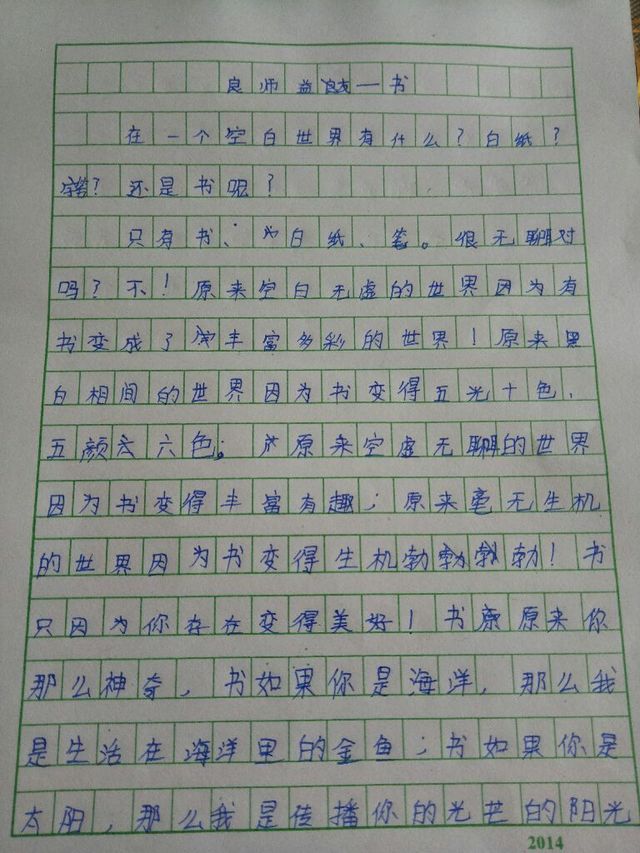 良师益友—书
在一个空白世界有什么？白纸？
笔？还是书呢？
只有书、白纸、笔。很无聊对
吗？不！原来空白无虚的世界因为有
书变成了丰富多彩的世界！原来黑
白相间的世界因为书变得五光十色、
五颜六色；原来空虚无聊的世界
因为书变得丰富有趣；原来毫无生机
的世界因为书变得生机勃勃勃勃！书
只因为你存在变得美好！书原原来你
那么神奇，书如果你是海洋，那么我
是生活在海洋里的金鱼；书如果你是
太阳，那么我是传播你的光芒的阳光
2014